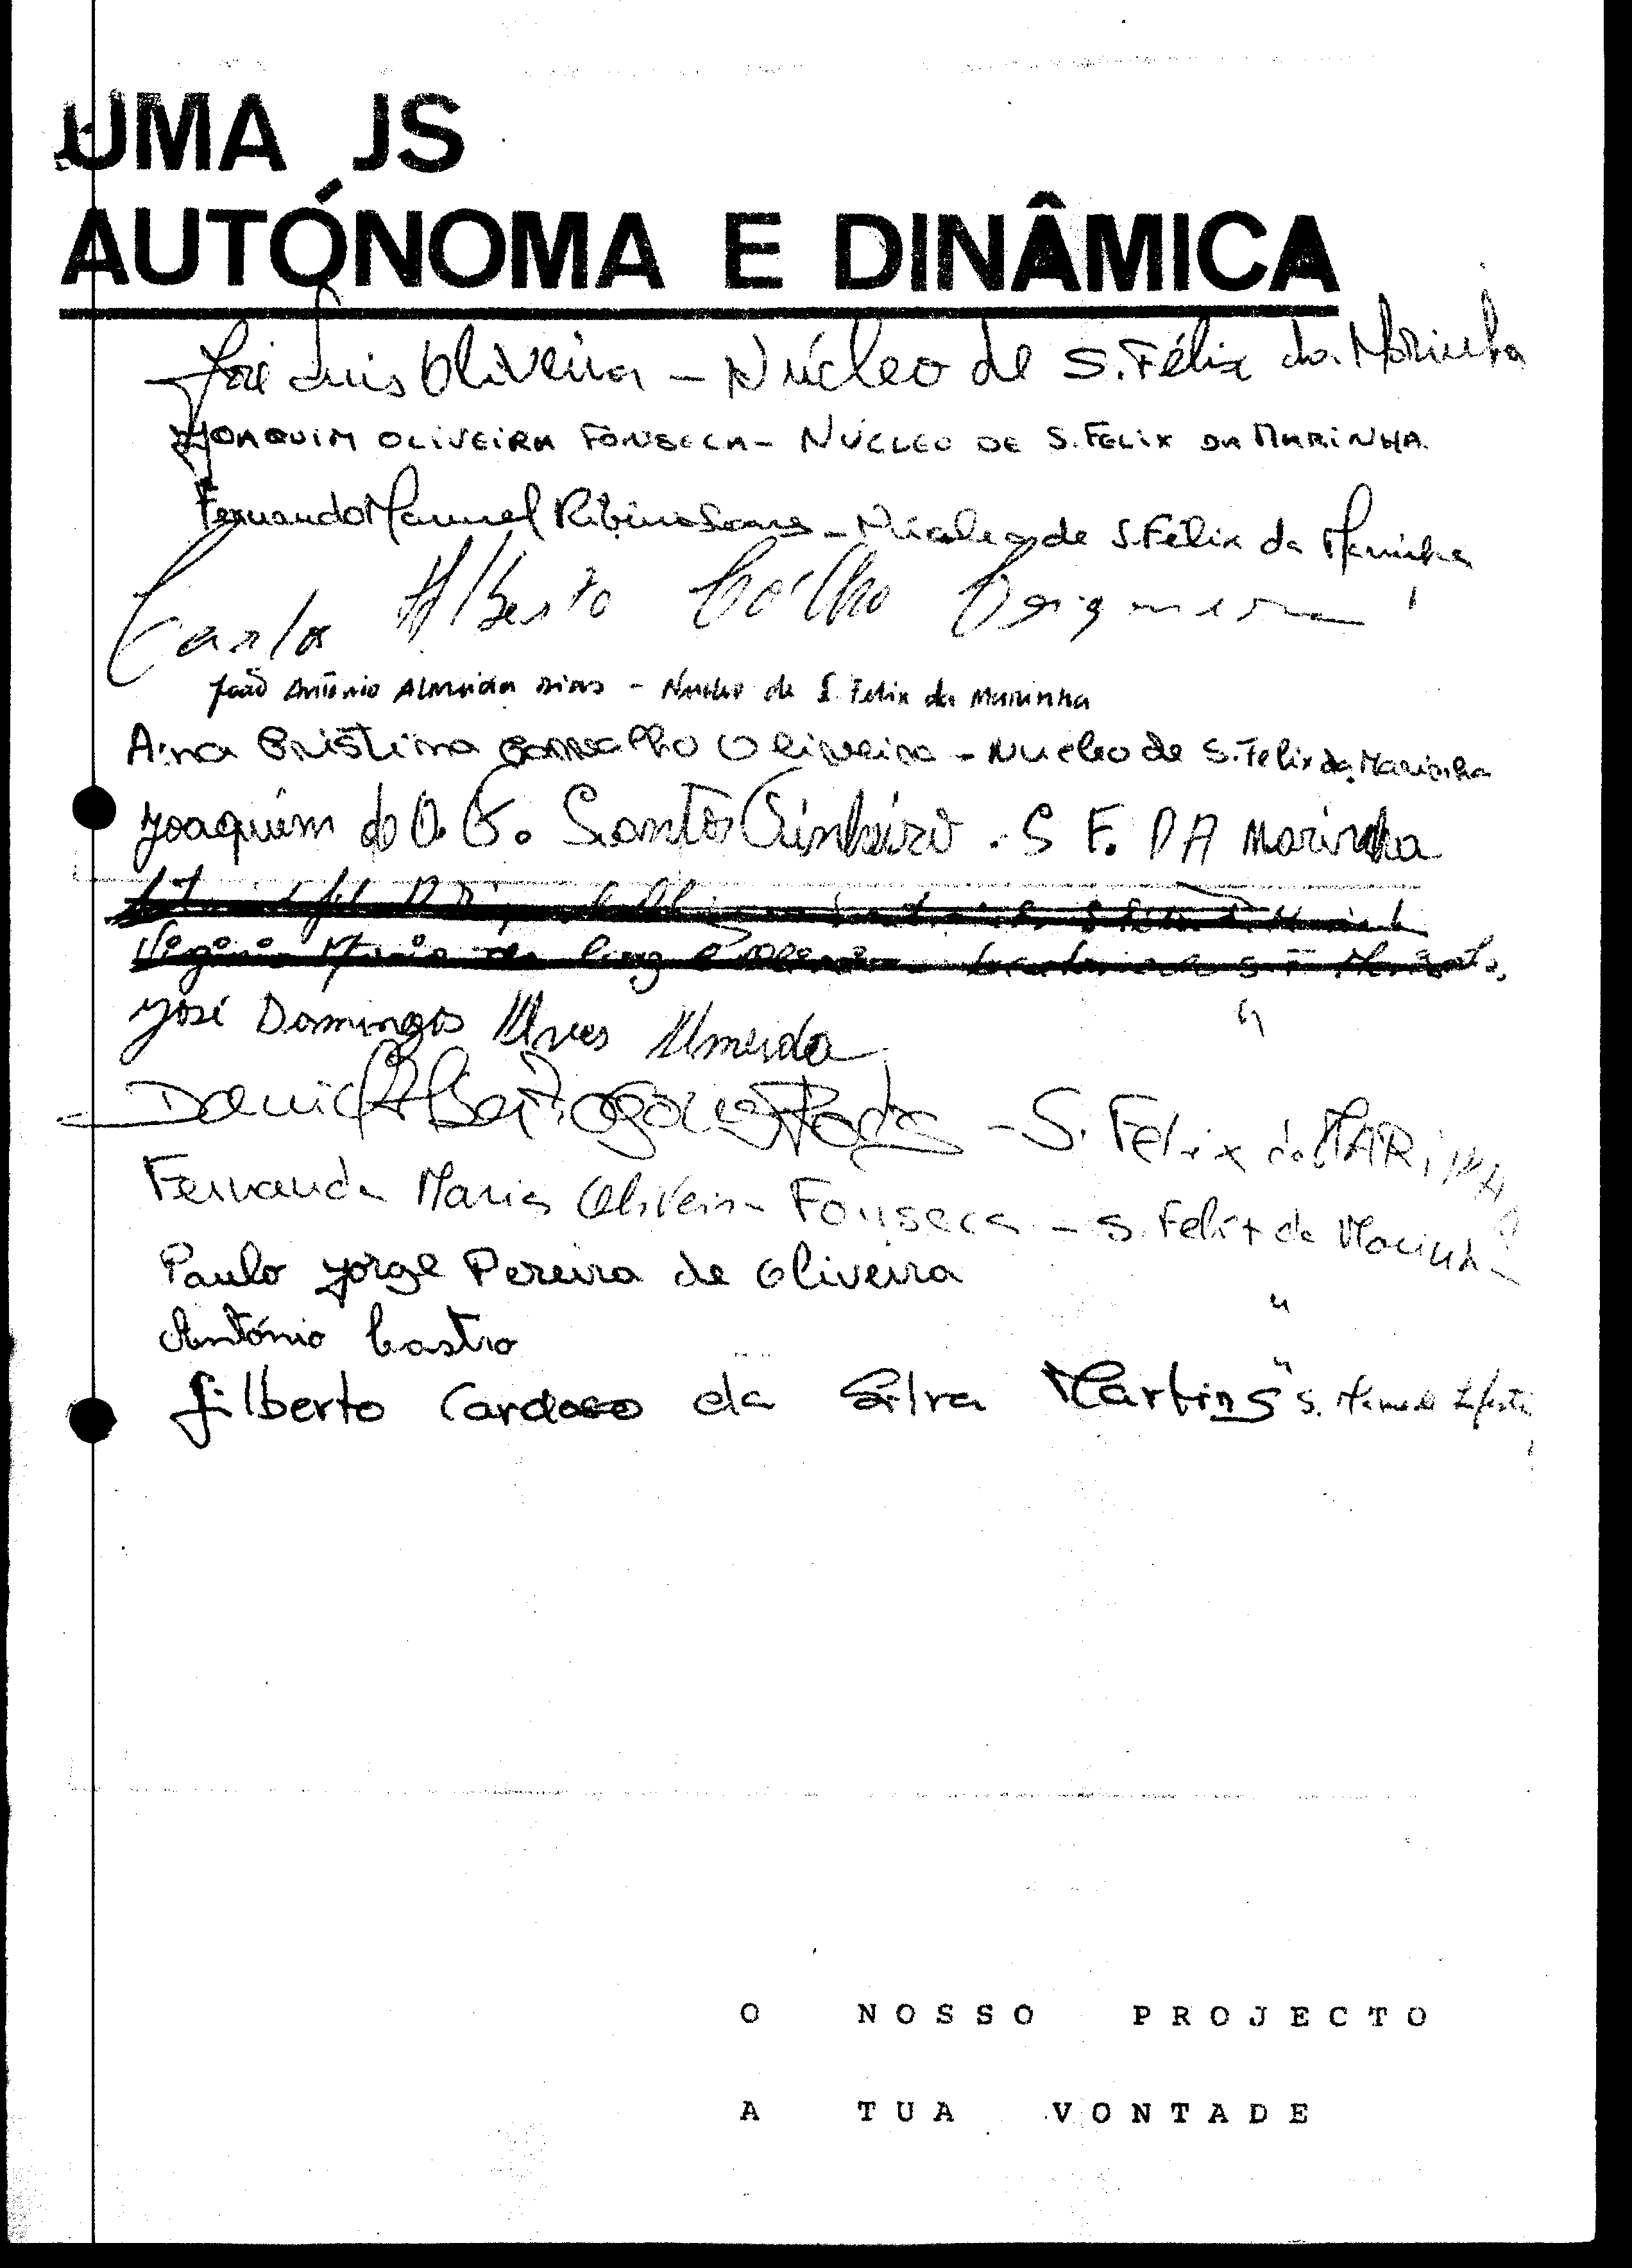 UMA JS
AUTÓNOMA E DINÂMICA
José Luis Oliveira - Núcleo de S. Félix da Marinha
JOAQUIM OLIVEIRA FONSECA - NÚCLEO DE S. FELIX DA MARINHA
Fernando Manuel Ribeiro Soares - Núcleo de S. Félix da Marinha
Carlos Alberto Coelho
João António Almeida Dias - Nucleo de S. Felix da Marinha
Ana Cristina Carvalho Oliveira - Nucleo de S. Felix da Marinha
Joaquim do O. G. Santos Pinheiro - S F. DA Marinha
José Domingos Alves Almeida "
Daniel Alberto - S. Felix da MARINHA
Fernanda Maria Oliveira Fonseca - S. Felix da Marinha
Paulo Jorge Pereira de Oliveira "
António Castro "
Gilberto Cardoso da Silva Martins S. Mamede Infesta
O NOSSO PROJECTO
A TUA VONTADE